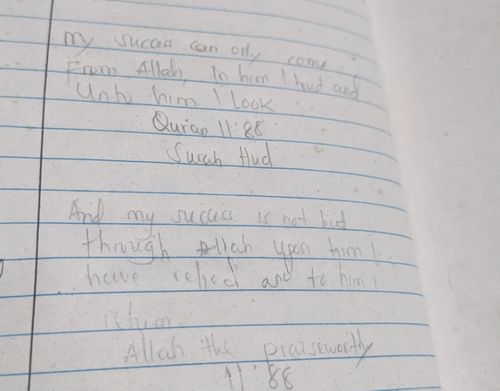 My success can only come
From Allah, In him I trust and
Unto him I Look
Quran 11:88
Surah Hud
And my success is not but
through Allah upon him I
have relied and to him I
Allah the praiseworthy
11:88